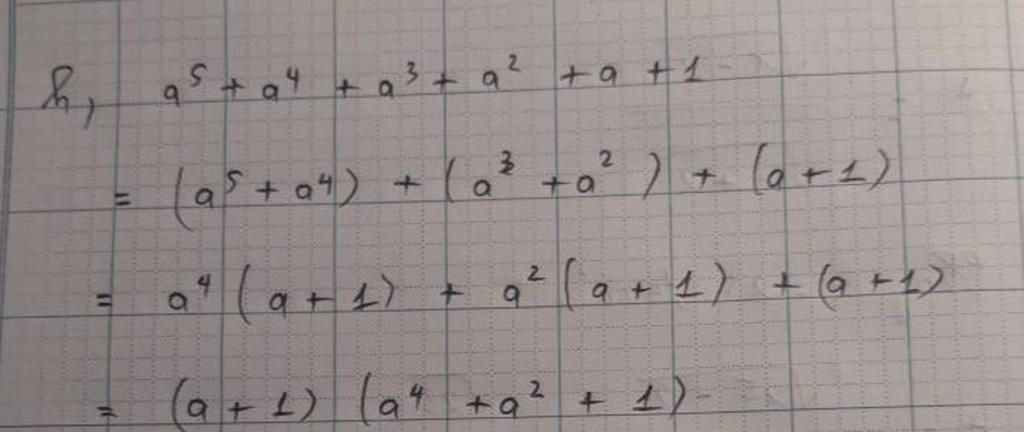 h, a⁵ + a⁴ + a³ + a² + a + 1
= (a⁵ + a⁴) + (a³ + a²) + (a + 1)
= a⁴ (a + 1) + a² (a + 1) + (a + 1)
= (a + 1) (a⁴ + a² + 1)